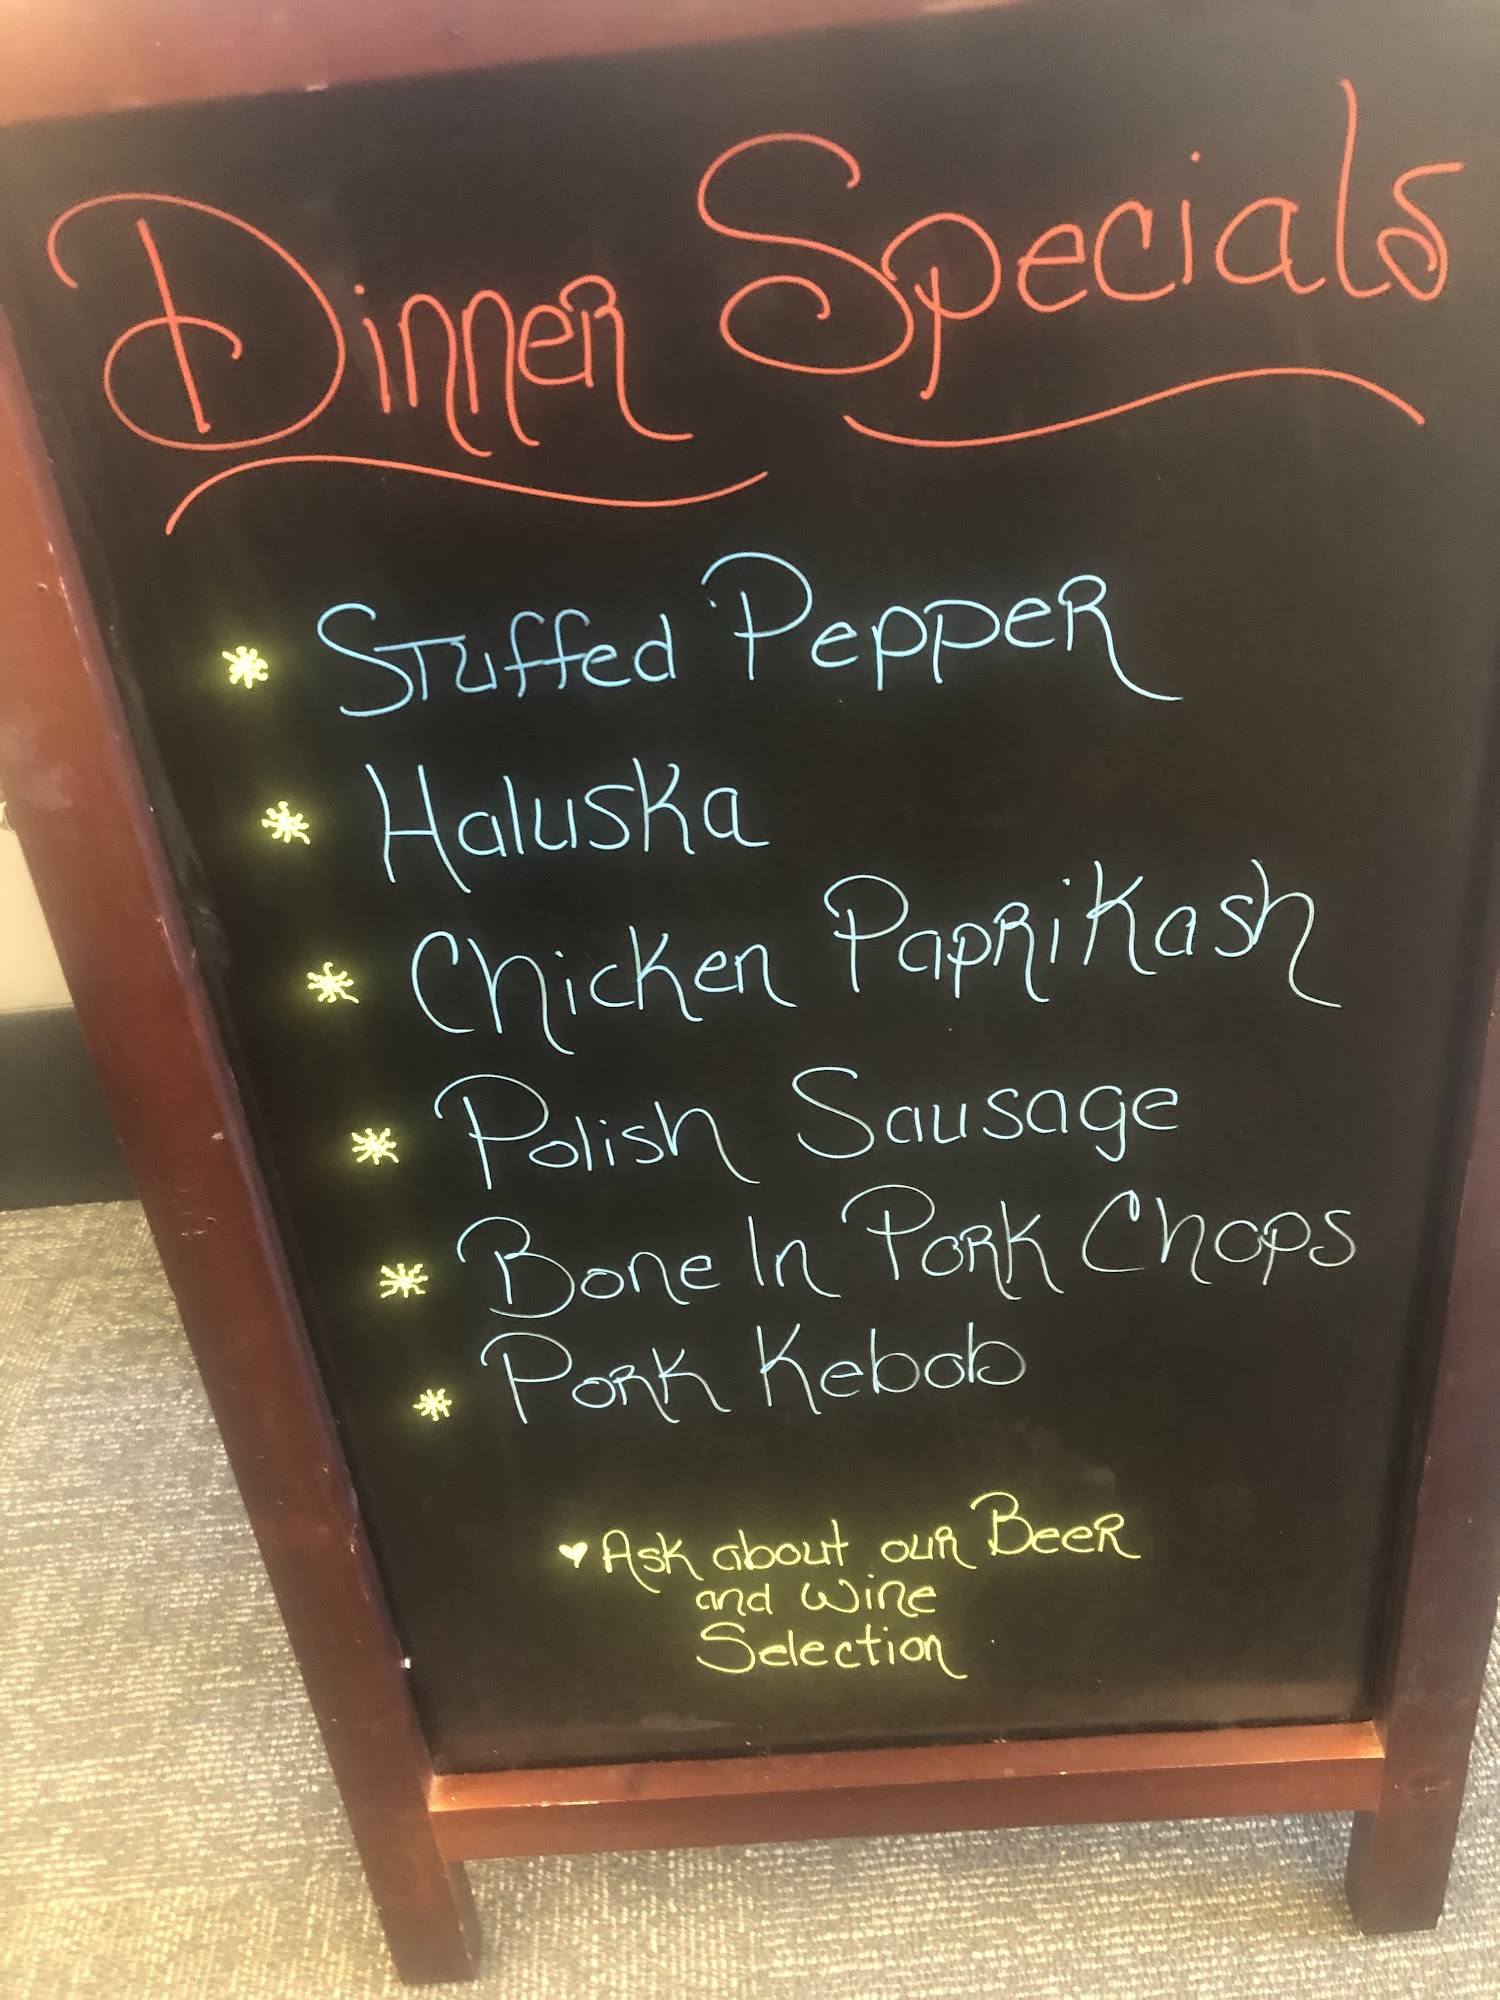 Dinner Specials
Stuffed Pepper
Haluska
Chicken Paprikash
Polish Sausage
Bone In Pork Chops
Pork Kebob
♥ Ask about our Beer
and Wine
Selection